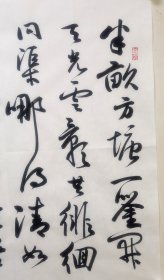 半畝方塘一鉴開
天光雲影共徘徊
问渠哪得清如